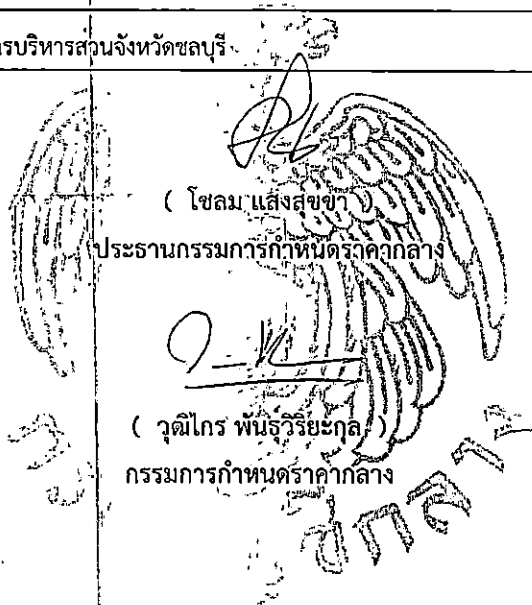 ารบริหารส่วนจังหวัดชลบุรี
( โชลม แสงสุขขา )
ประธานกรรมการกำหนดราคากลาง
( วุฒิไกร พันธุวิริยะกุล )
กรรมการกำหนดราคากลาง